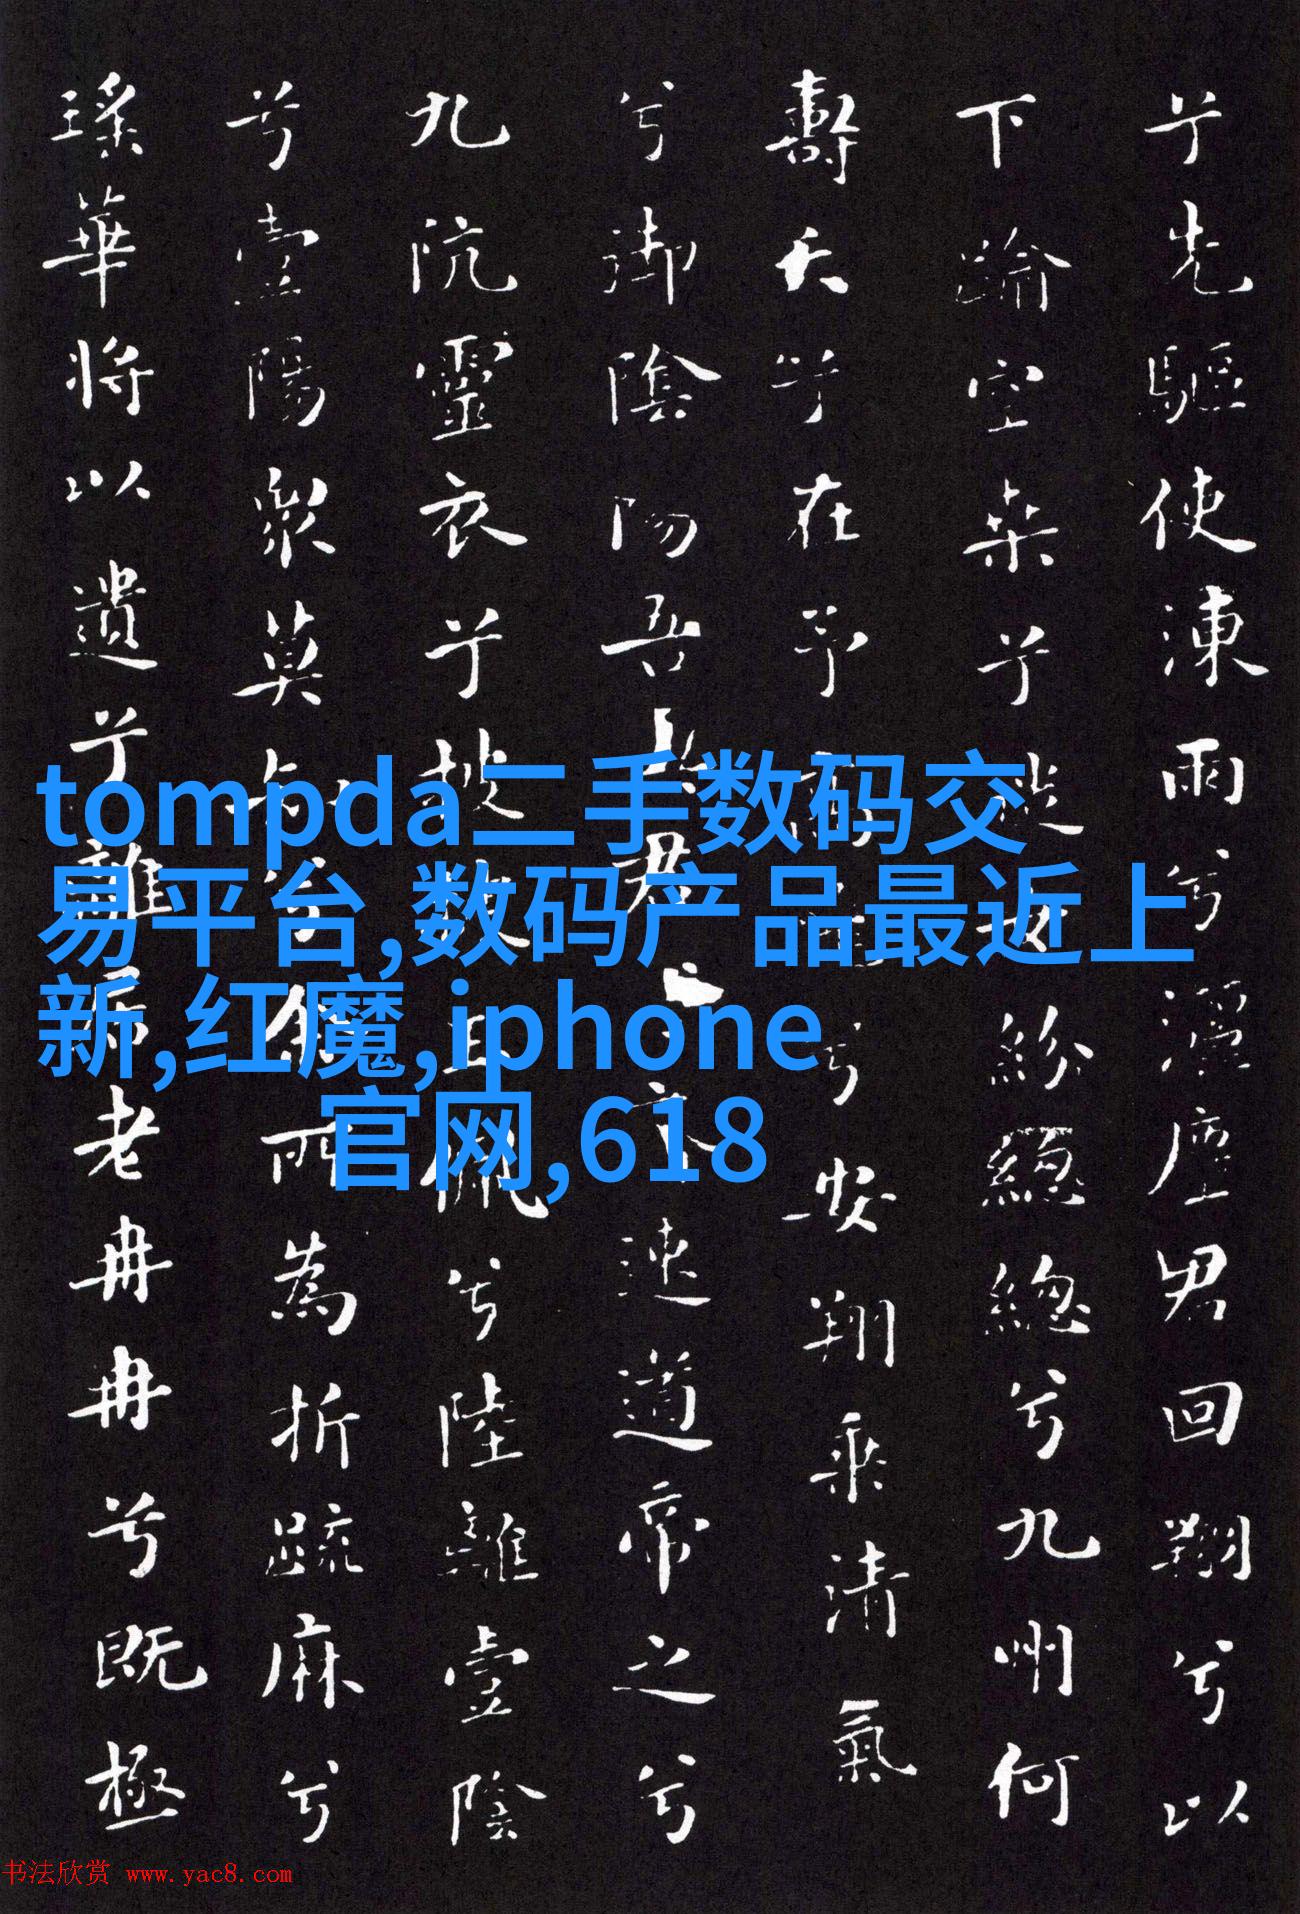 兮先驅使涷雨兮灑塵君回翔兮以
下踰空桑兮從女紛總總兮九州何
壽夭兮在予高飛兮安翔乘清氣
兮御陰陽吾與君兮速道帝之兮
九阬靈衣兮被被玉佩兮陸離壹陰
兮壹陽眾莫知兮余所為折疏麻兮
瑤華將以遺兮離居老冉冉兮既極
tompda二手数码交
易平台,数码产品最近上
新,红魔,iphone
官网,618
书法欣赏 www.yac8.com